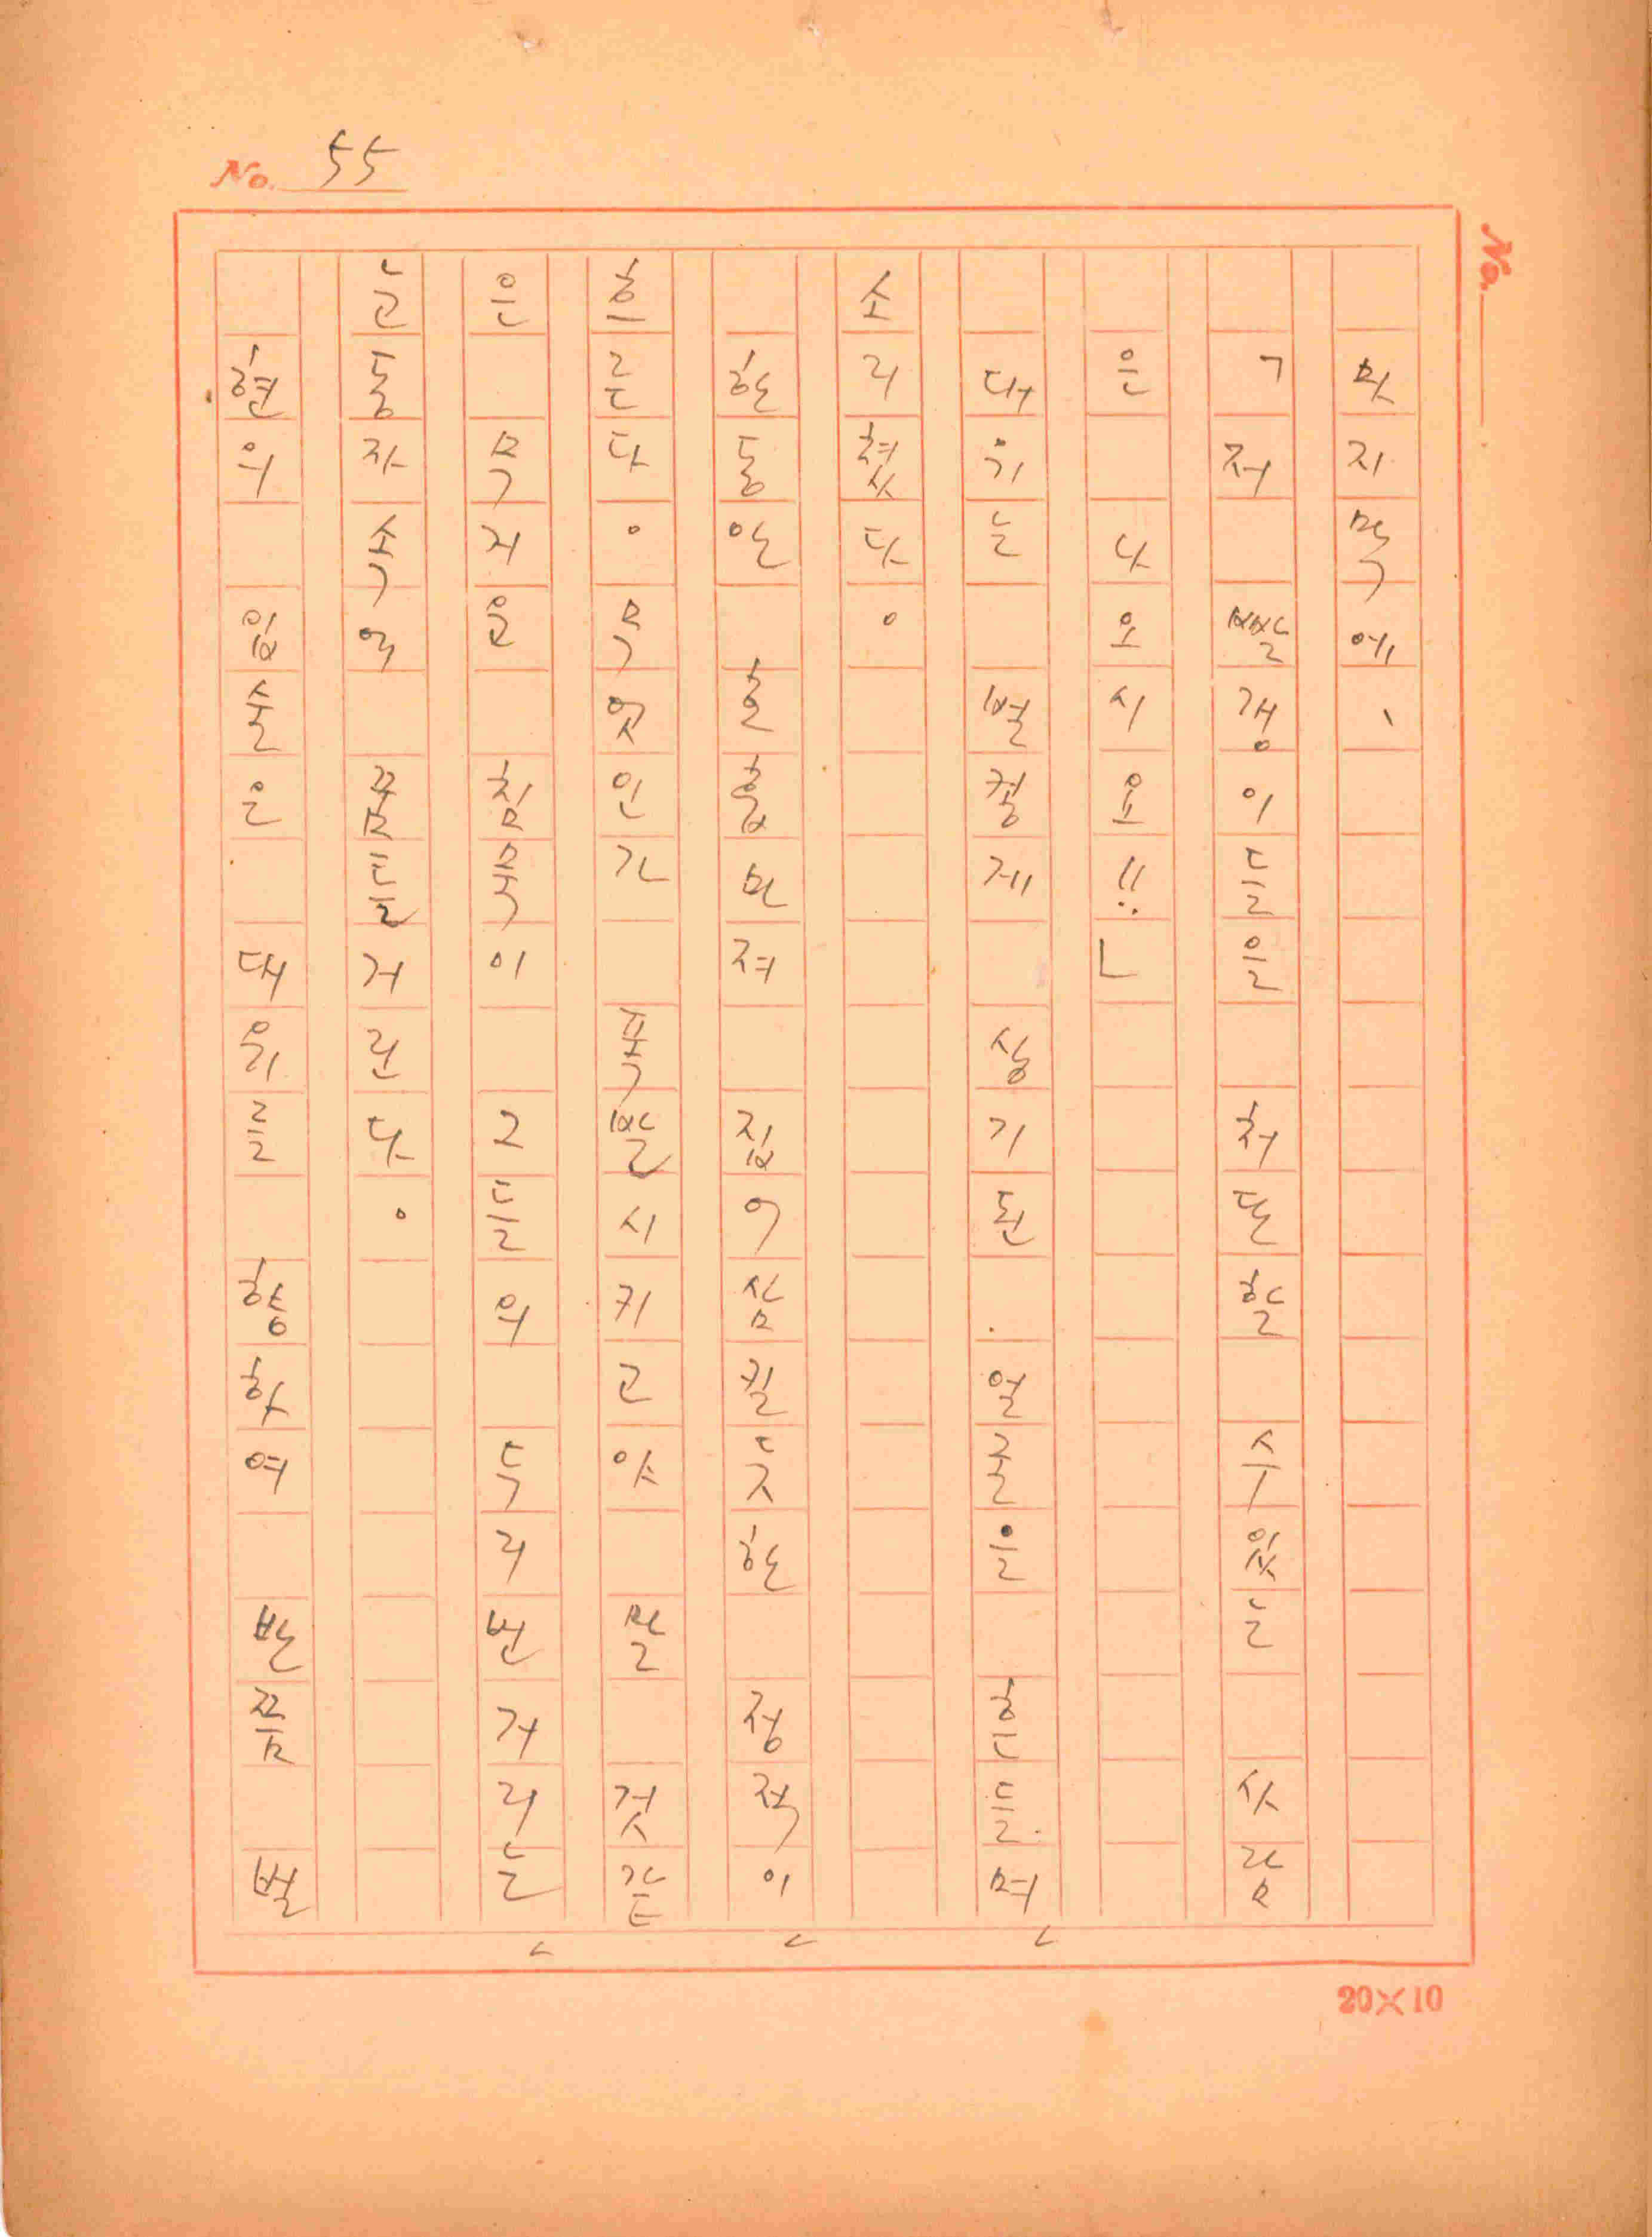 No. 55
No.
맛지막에、
「저 빨갱이들은 처단할 수 있는 사람
은 나오시오!!」
대위는 벌컹게 상기된 얼골을 흔들며
소리쳤다。
한동안 집어삼킬듯한 정적이
흐른다。무엇인가 폭발시키고야 말 것같
은 무거운 침묵이 그들의 두리번거리는
눈동자속에 꿈틀거린다。
현의 입술은 대위를 향하여 반쯤 벌
20×10